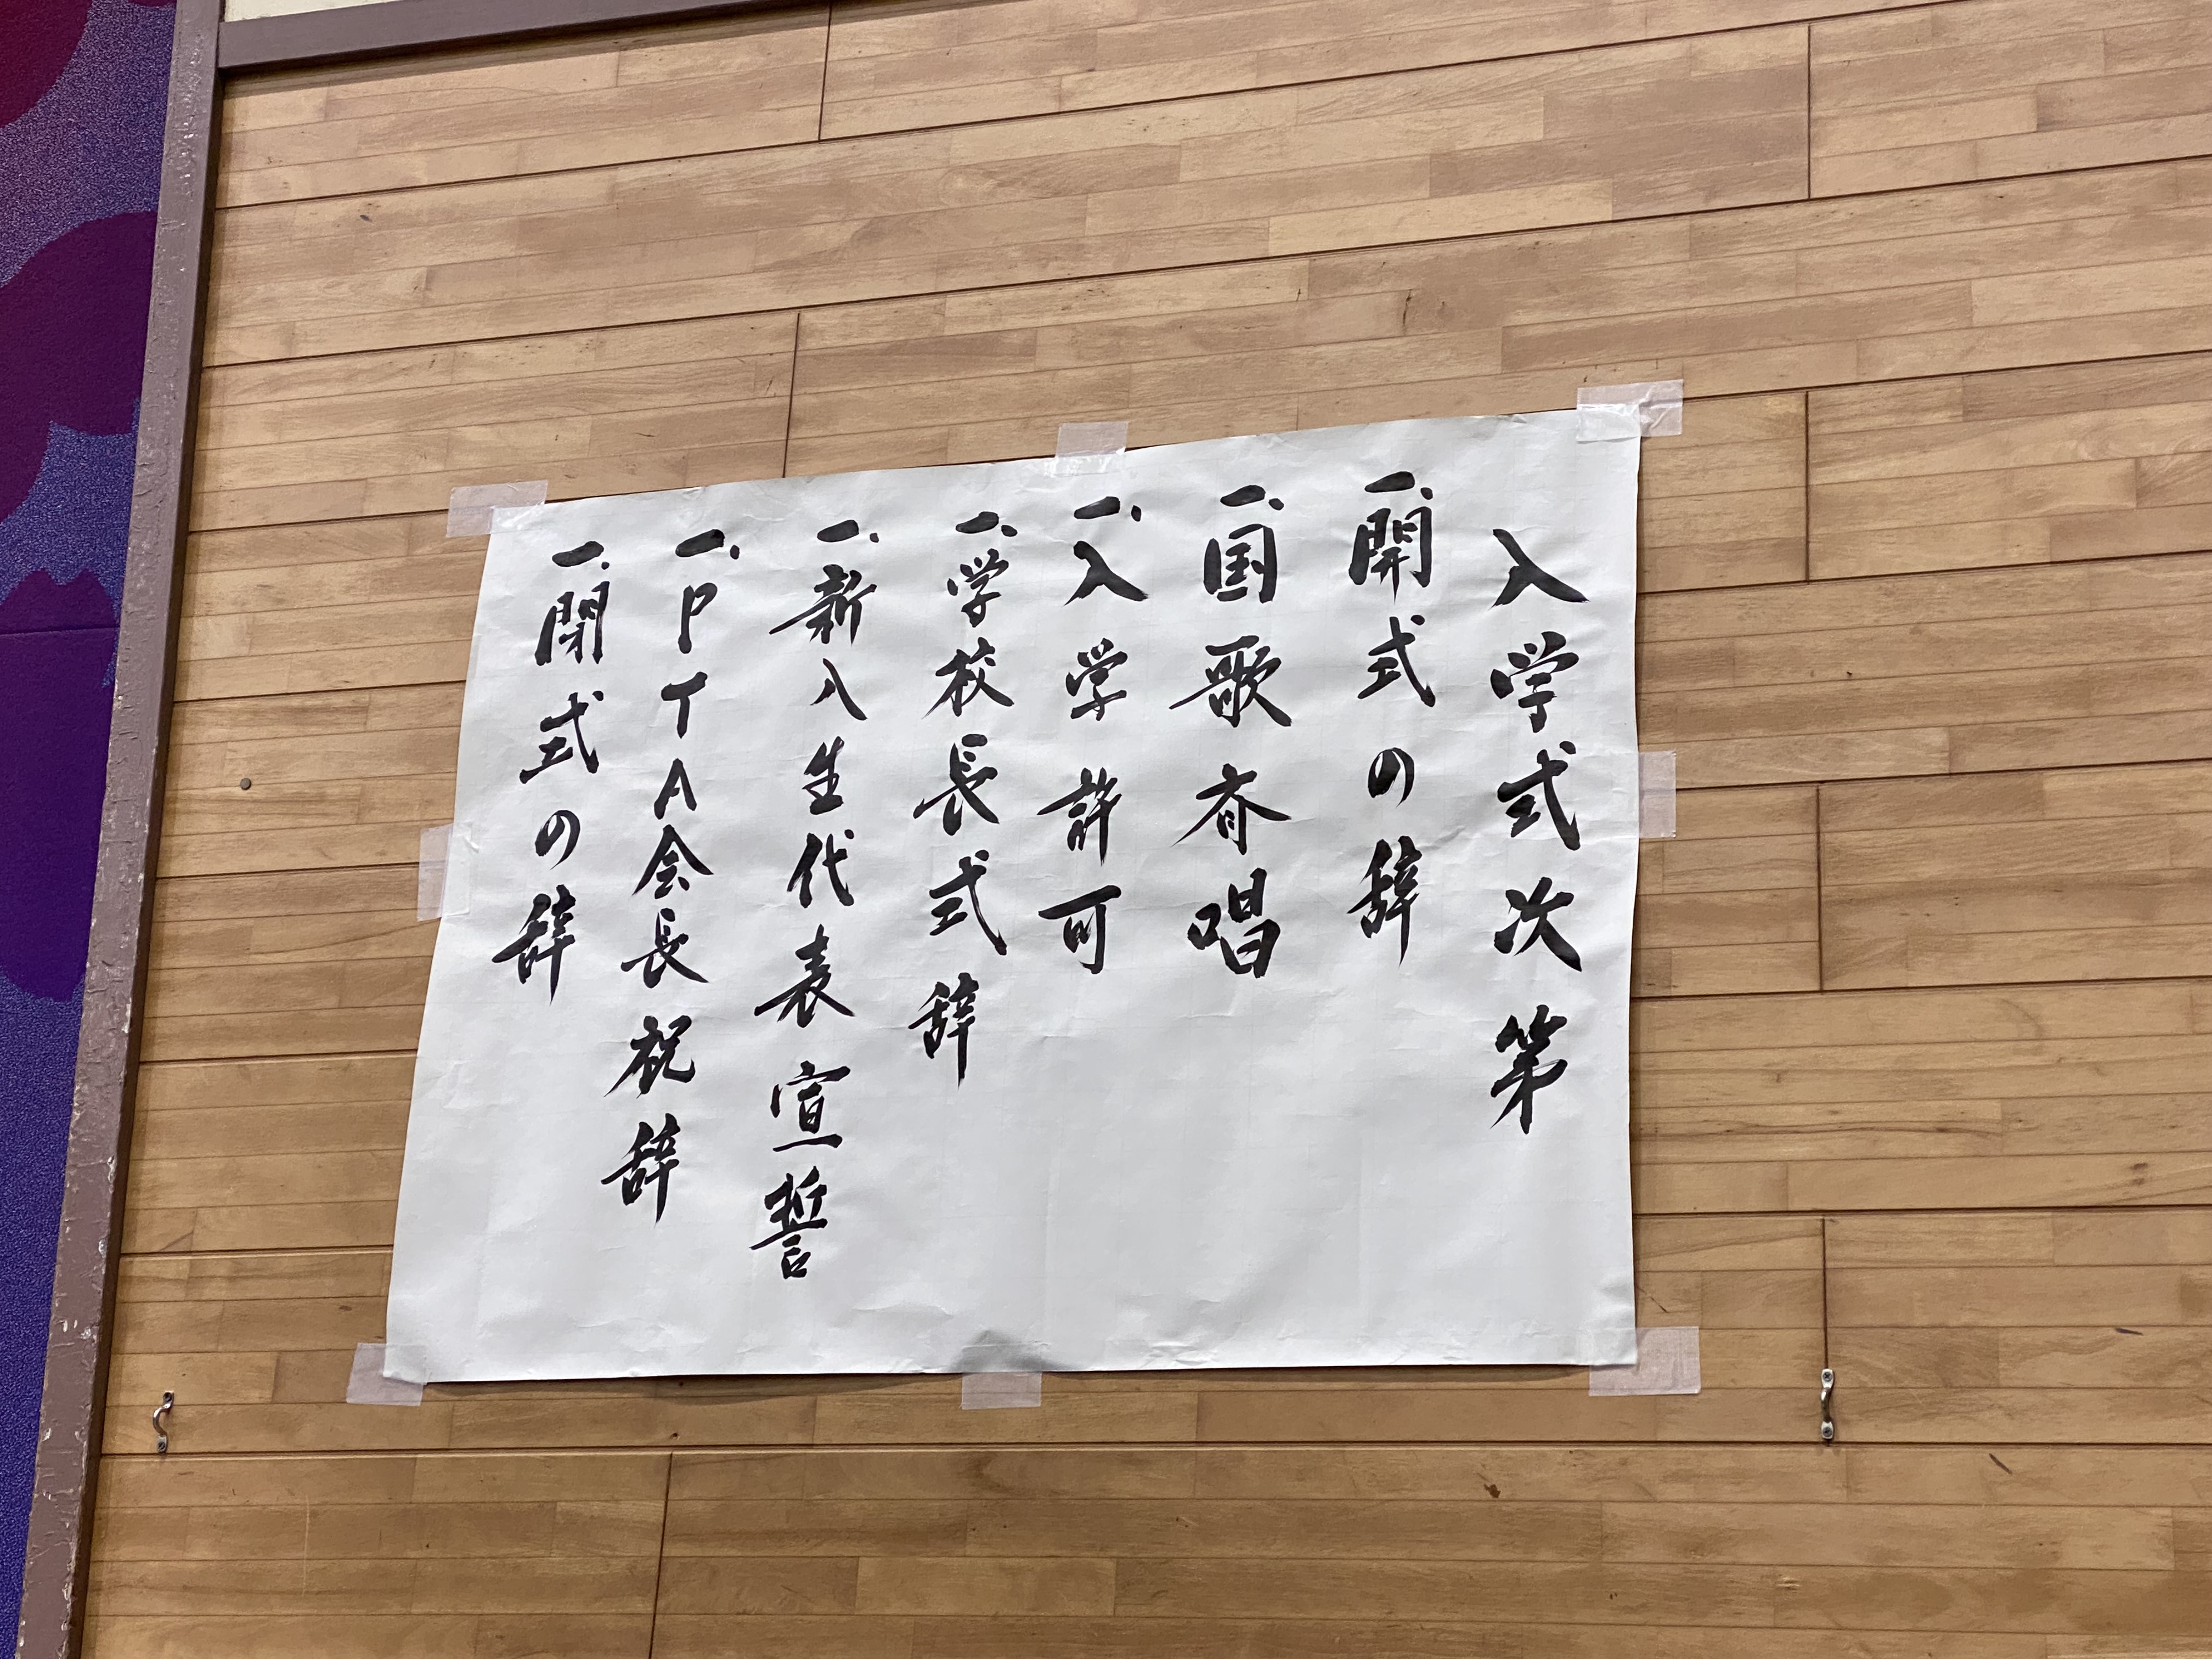 入学式次第
一、開式の辞
一、国歌斉唱
一、入学許可
一、学校長式辞
一、新入生代表宣誓
一、PTA会長祝辞
一、閉式の辞